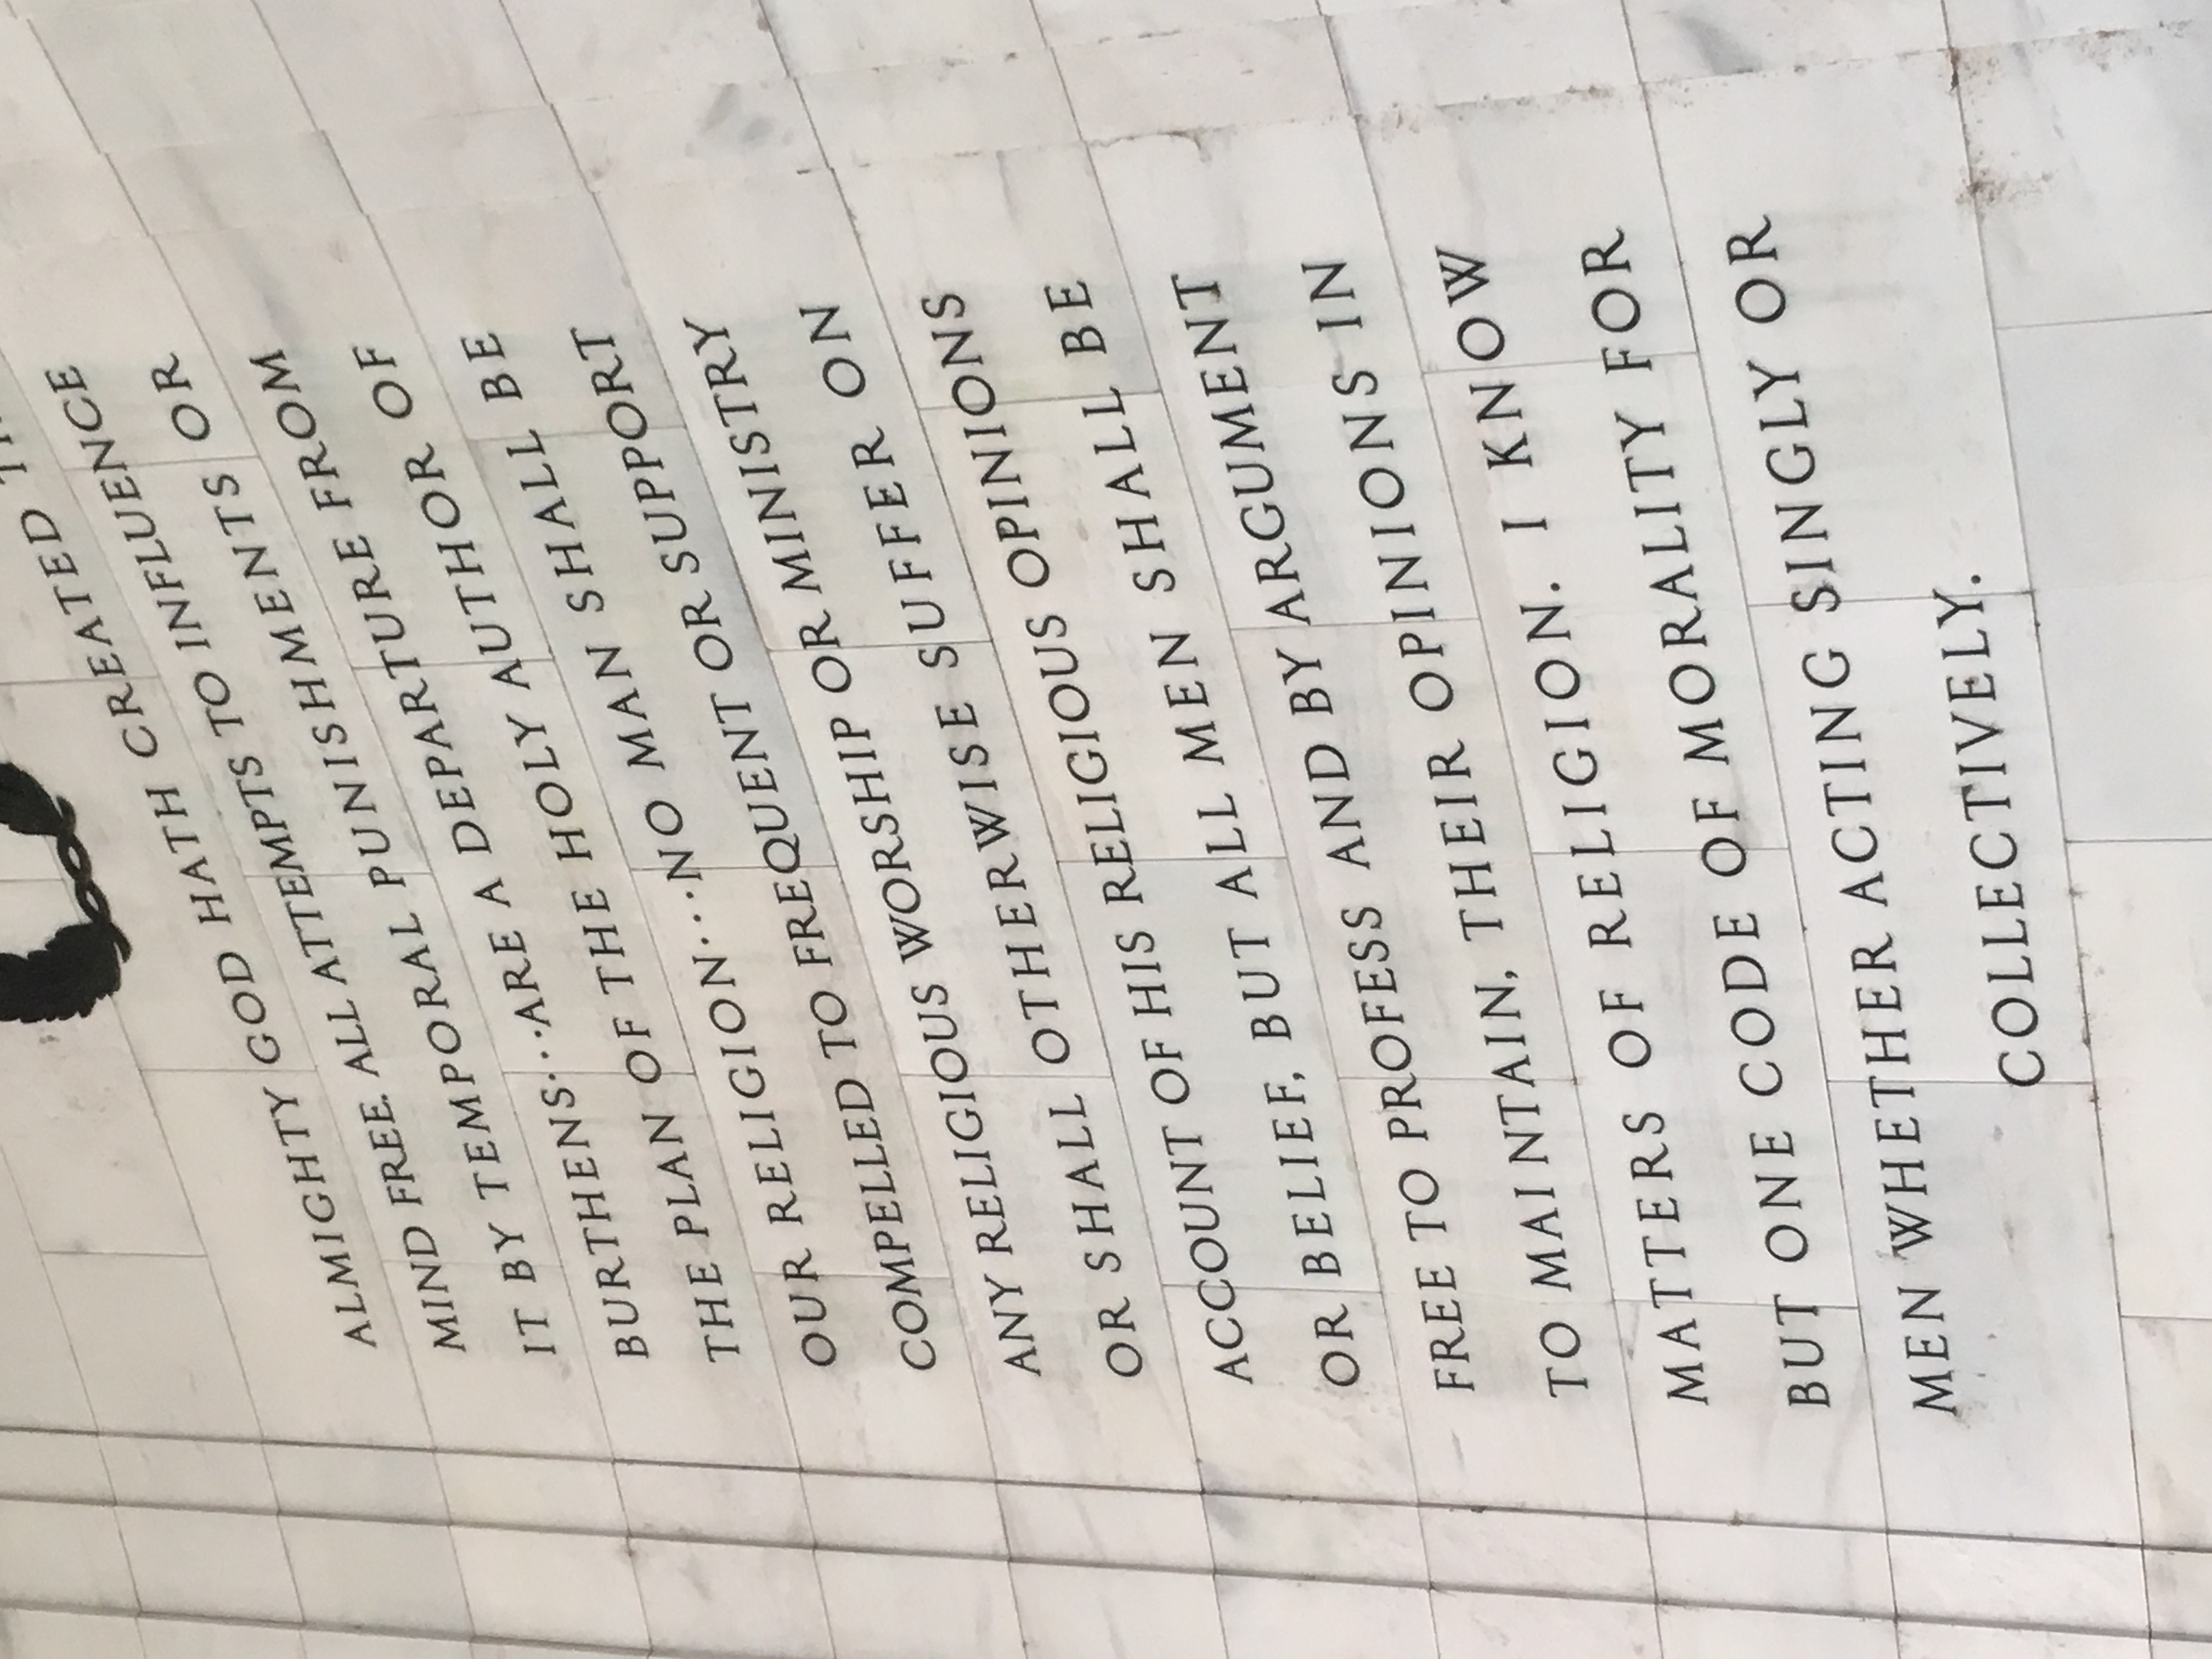 ALMIGHTY GOD HATH CREATED
MIND FREE. ALL ATTEMPTS TO INFLUENCE
IT BY TEMPORAL PUNISHMENTS OR
BURTHENS···ARE A DEPARTURE FROM
THE PLAN OF THE HOLY AUTHOR OF
OUR RELIGION···NO MAN SHALL BE
COMPELLED TO FREQUENT OR SUPPORT
ANY RELIGIOUS WORSHIP OR MINISTRY
OR SHALL OTHERWISE SUFFER ON
ACCOUNT OF HIS RELIGIOUS OPINIONS
OR BELIEF, BUT ALL MEN SHALL BE
FREE TO PROFESS AND BY ARGUMENT
TO MAINTAIN, THEIR OPINIONS IN
MATTERS OF RELIGION. I KNOW
BUT ONE CODE OF MORALITY FOR
MEN WHETHER ACTING SINGLY OR
COLLECTIVELY.